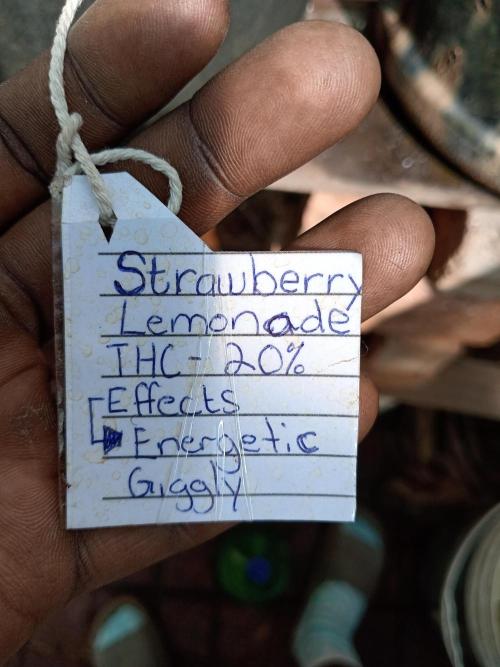 Strawberry
Lemonade
THC- 20%
Effects
Energetic
Giggly